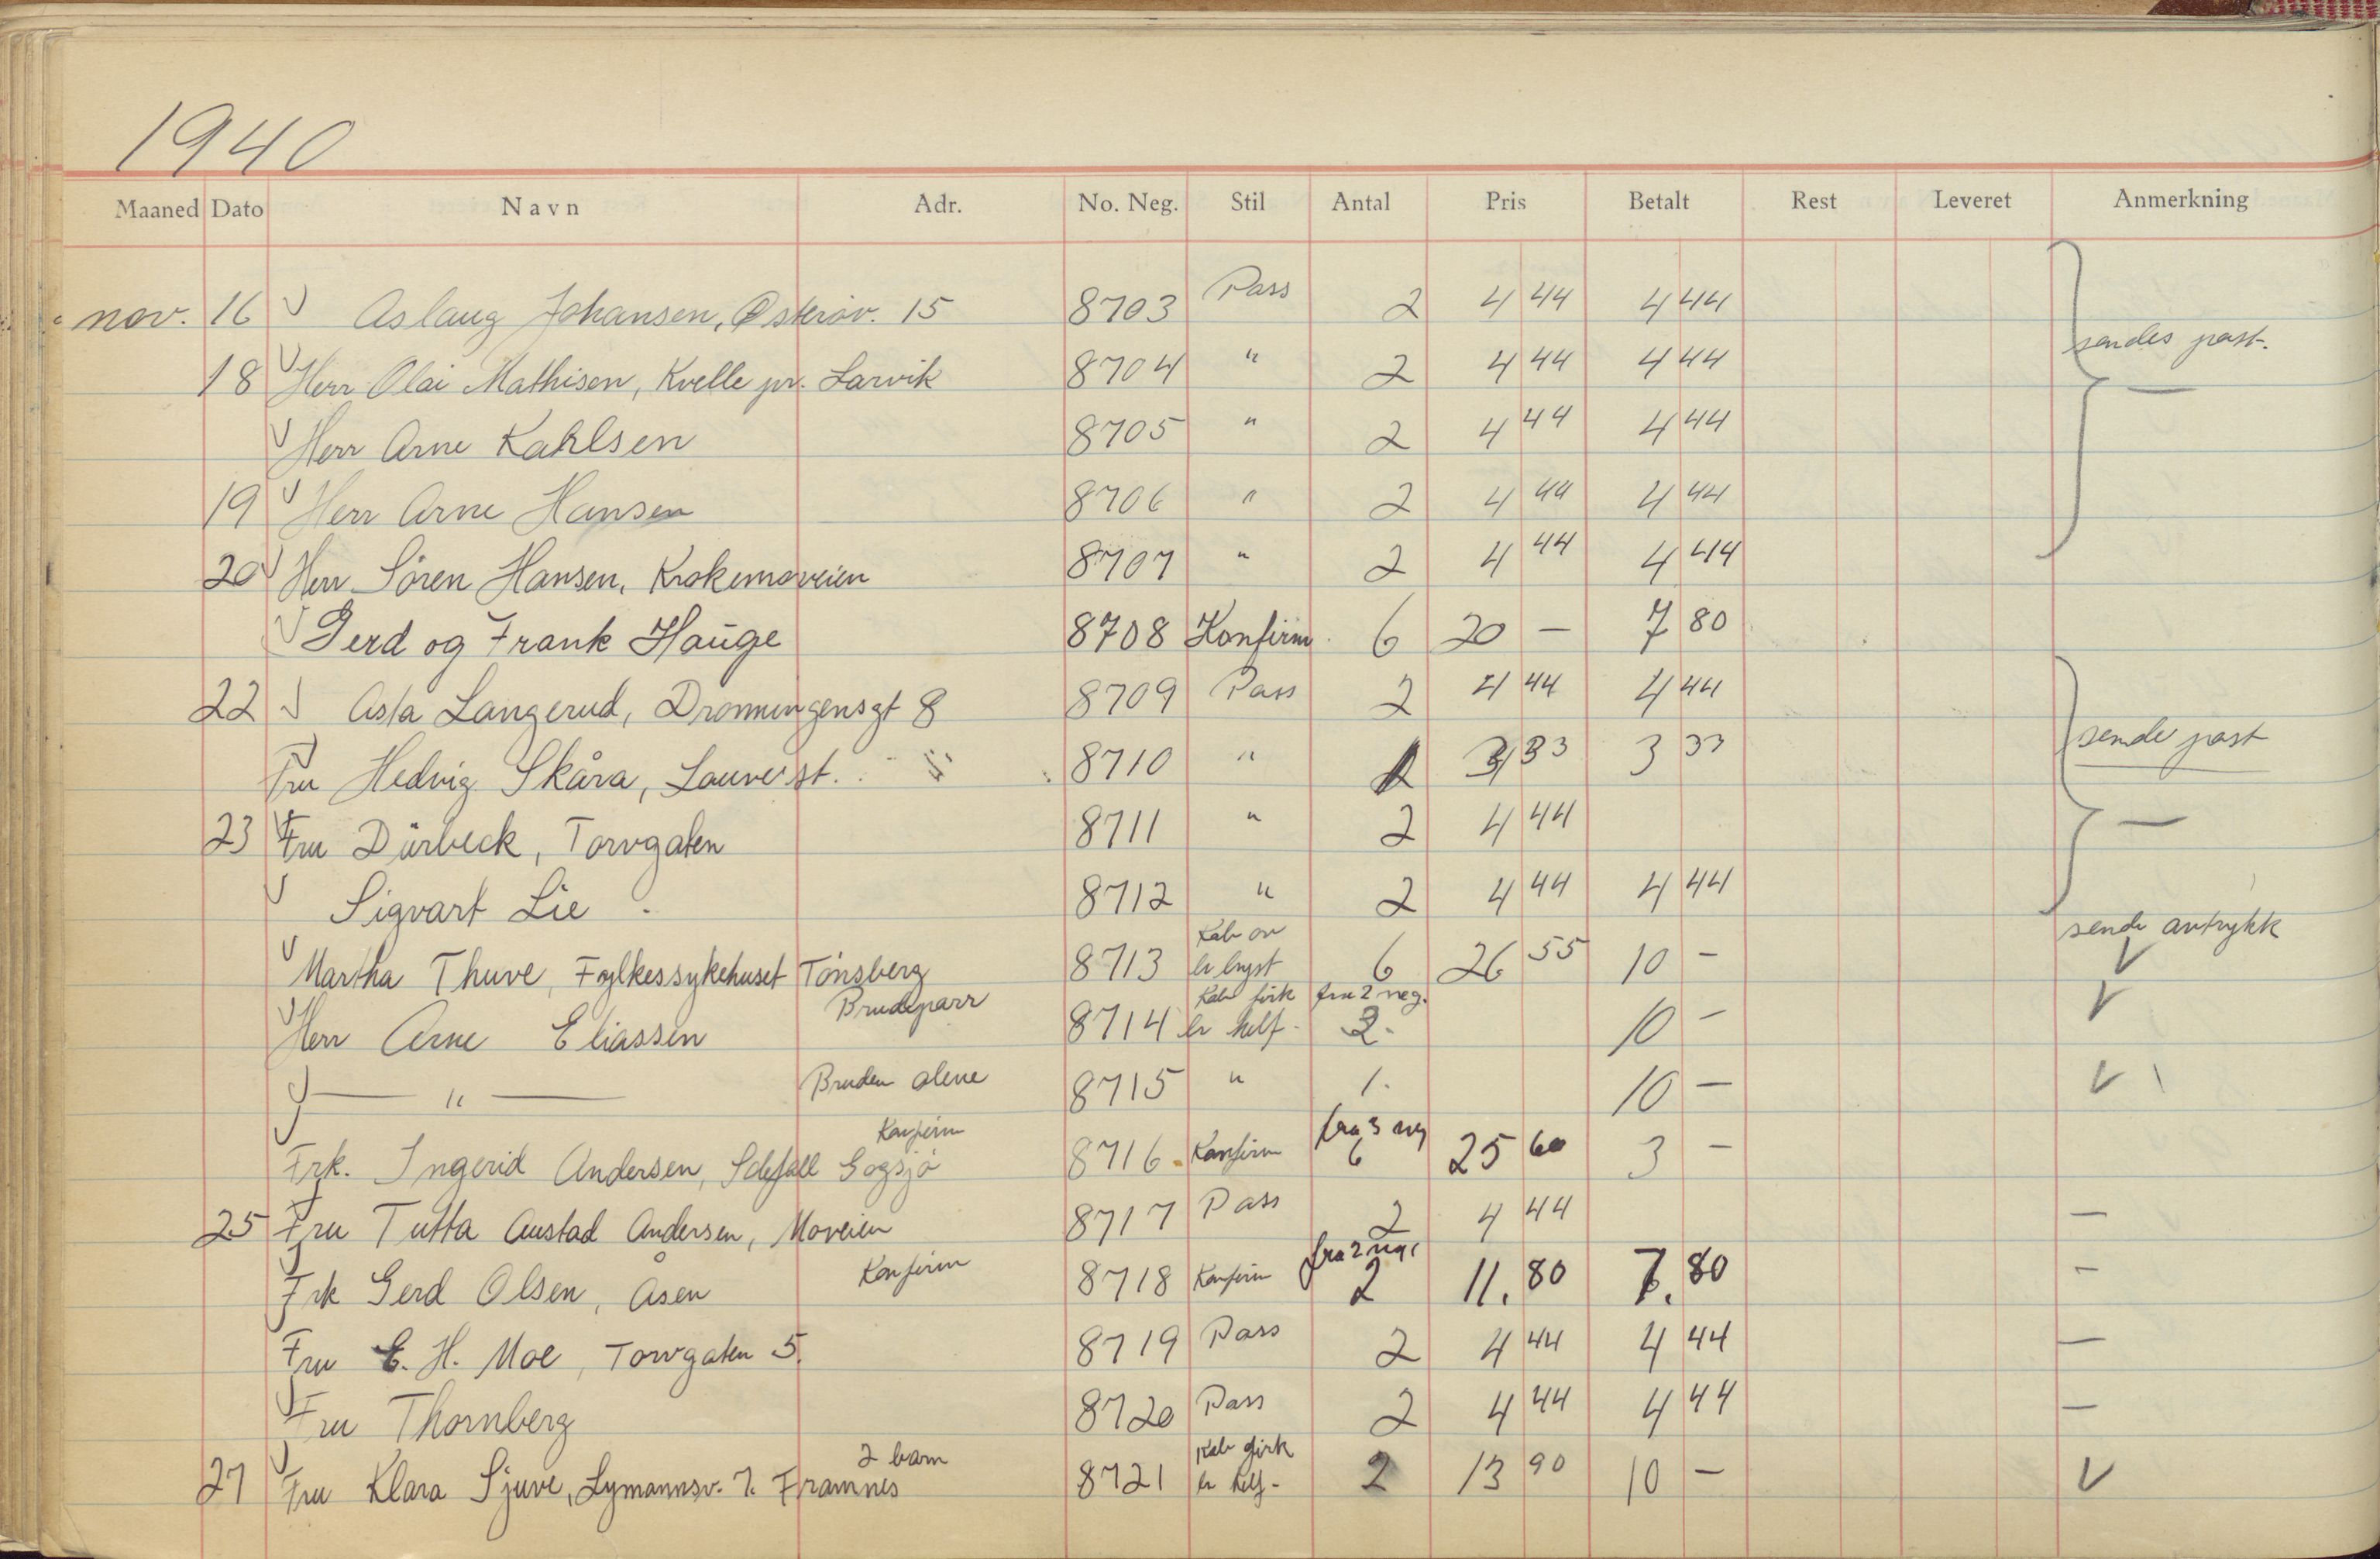 1940
Maaned Dato Navn Adr. No. Neg. Stil Antal Pris Betalt Rest Leveret Anmerkning
nov. 16 Aslaug Johansen, Østerøv. 15 8703 Pass 2 4 44 4 44
sendes past.
18 Herr Olai Mathisen, Kvelle pr. Larvik 8704 " 2 4 44 4 44 —
Herr Arne Kahlsen 8705 " 2 4 44 4 44
19 Herr Arne Hansen 8706 " 2 4 44 4 44
20 Herr Sören Hansen, Krokemoveien 8707 " 2 4 44 4 44
Gerd og Frank Hauge 8708 Konfirm. 6 20 — 7 80
22 Asta Langerud, Dronningensgt 8 8709 Pass 2 4 44 4 44
sende past
Fru Hedvig Skåra, 8710 " 3 33 3 33
23 Fru Dürbeck, Torvgaten 8711 " 2 4 44 —
Sigvart Lie 8712 " 2 4 44 4 44
sende avtrykk
Martha Thuve, Fylkessykehuset Tönsberg 8713 Kab er bryst 6 26 55 10 — V
Brudeparr Kab fra 2 neg.
Herr Arne Eliassen 8714 er helf. 2. 10 — V
— " — Bruden alene 8715 " 1. 10 — V
Konfirm fra 3 neg
Frk. Ingerid Andersen, Gogsjö 8716 Konfirm 6 25 60 3 —
25 Fru Tutta Austad Andersen, Moveien 8717 Pass 2 4 44 —
Konfirm fra 2 neg.
Frk Gerd Olsen, Åsen 8718 Konfirm 2 11.80 7.80 —
Fru E. H. Moe, Torvgaten 5. 8719 Pass 2 4 44 4 44 —
Fru Thornberg 8720 Pass 2 4 44 4 44 —
2 barn Kab
27 Fru Klara Sjuve, Lymannsv. 7. Framnes 8721 er helf- 2 13 90 10 — V